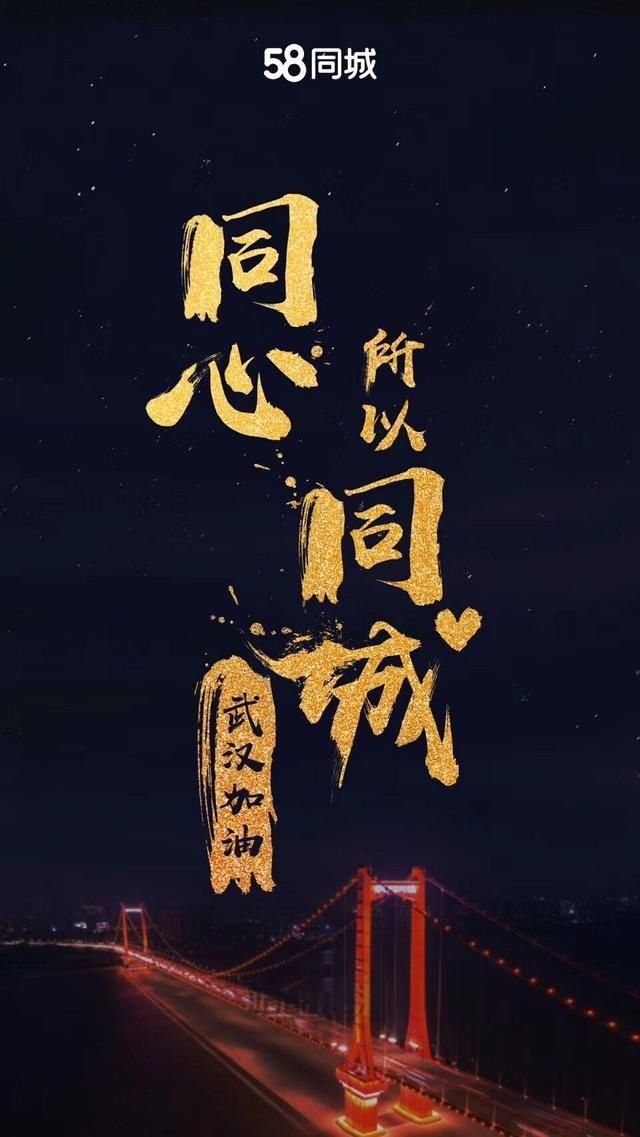 58同城
同心
所以
同城
武汉加油